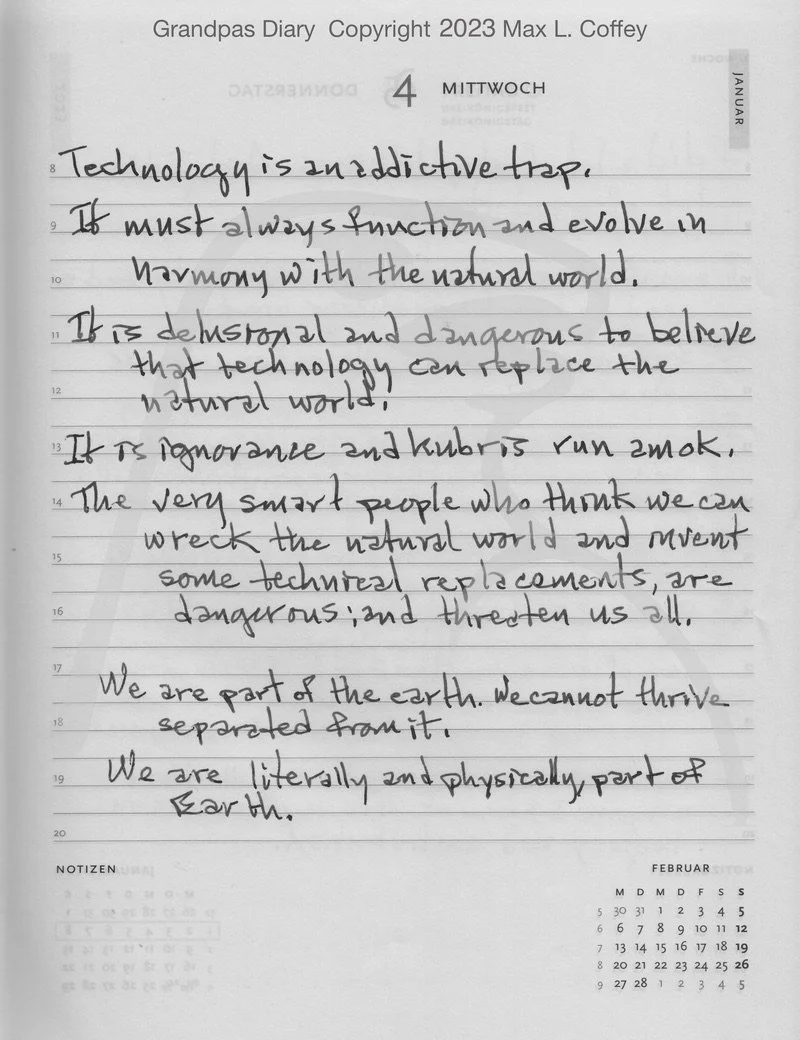 Grandpas Diary Copyright 2023 Max L. Coffey
4 MITTWOCH
JANUAR
8 Technology is an addictive trap.
9 It must always function and evolve in
10 harmony with the natural world.
11 It is delusional and dangerous to believe
that technology can replace the
12 natural world.
13 It is ignorance and hubris run amok.
14 The very smart people who think we can
wreck the natural world and invent
15 some technical replacements, are
16 dangerous; and threaten us all.
17 We are part of the earth. We cannot thrive
18 separated from it.
19 We are literally and physically, part of
Earth.
20
NOTIZEN
FEBRUAR
M D M D F S S
5 30 31 1 2 3 4 5
6 6 7 8 9 10 11 12
7 13 14 15 16 17 18 19
8 20 21 22 23 24 25 26
9 27 28 1 2 3 4 5